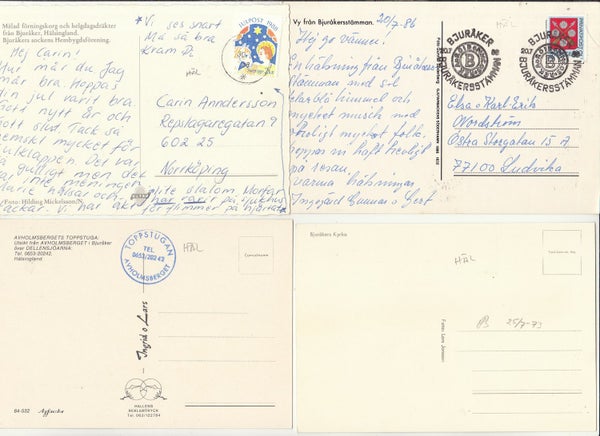 Målad förningskorg och helgdagsdräkter
från Bjuråker, Hälsingland.
Bjuråkers sockens Hembygdsförening.
Hej Carin!
Hur mår du Jag
mår bra. Hoppas
din jul varit bra.
Gott nytt år och
Gott slut. Tack så
hemskt mycket för
julklappen. Det var
gulligt men det
var inte meningen
hälsar och
tackar. Vi har åkt
lite slalom Morfar
har varit på sjukhus
förflimmer på hjärtat
Foto: Hilding Mickelsson/N
* Vi ses snart
Må så bra
Kram Pi
JULPOST 1988
HÄL
Carin Anndersson
Repslagaregatan 9
602 25
Norrköping
Vy från Bjuråkersstämman.
20/7.86
Hej go vänner!
En hälsning från Bjuråkers
stämman med sol
klarblå himmel och
mycket musik med
otroligt mycket folk.
Hoppas ni haft trevligt
på resan.
Varma hälsningar
Ingegerd Gunnar o Gert
HÄL
BJURÅKER
20.7 86
BJURÅKERSSTÄMMAN
BJURÅKER
20.7
BJURÅKERSSTÄMMAN
Elsa o Karl-Erik
Nordström
Östra Storgatan 15 A
77100 Ludvika
AVHOLMSBERGETS TOPPSTUGA:
Utsikt från AVHOLMSBERGET i Bjuråker
över DELLENSJÖARNA:
Tel. 0653-20242.
Hälsingland
TOPPSTUGAN
TEL.
0653/20242
AVHOLMSBERGET
HÄL
Ingrid o Lars
HALLENS
REKLAMTRYCK
Tel. 063/102784
84-932
Bjuråkers Kyrka
HÄL
Foto: Lars Jonsson
25/7-73